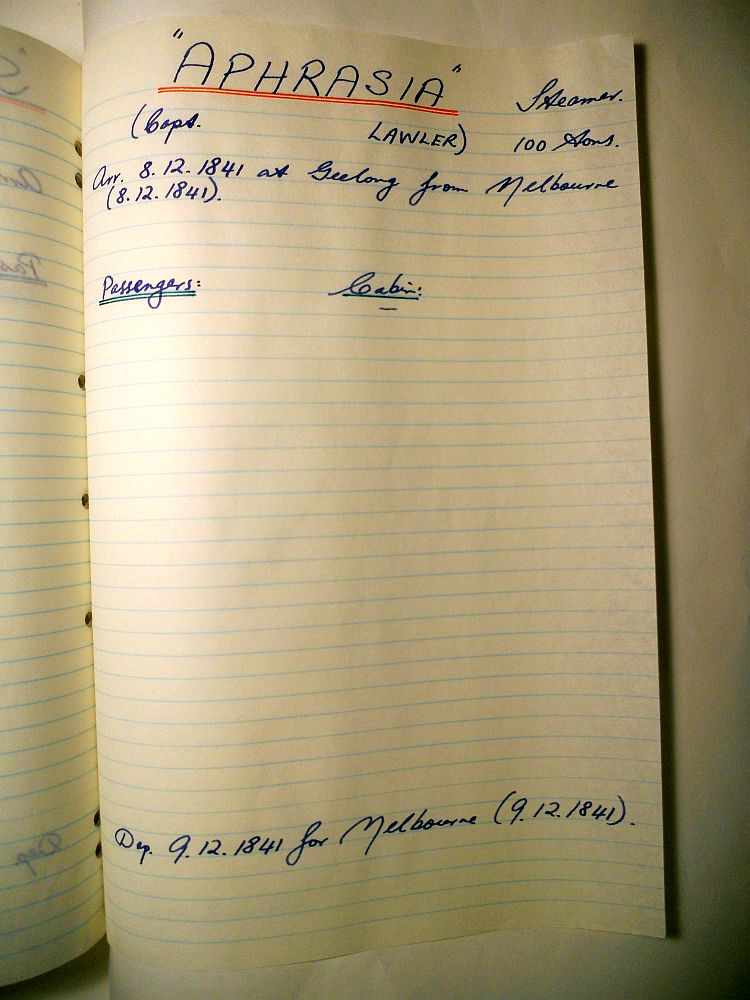 "APHRASIA" Steamer.
(Capt. LAWLER) 100 tons.
Arr. 8.12.1841 at Geelong from Melbourne
(8.12.1841).
Passengers: Cabin:
—
Dep. 9.12.1841 for Melbourne (9.12.1841).